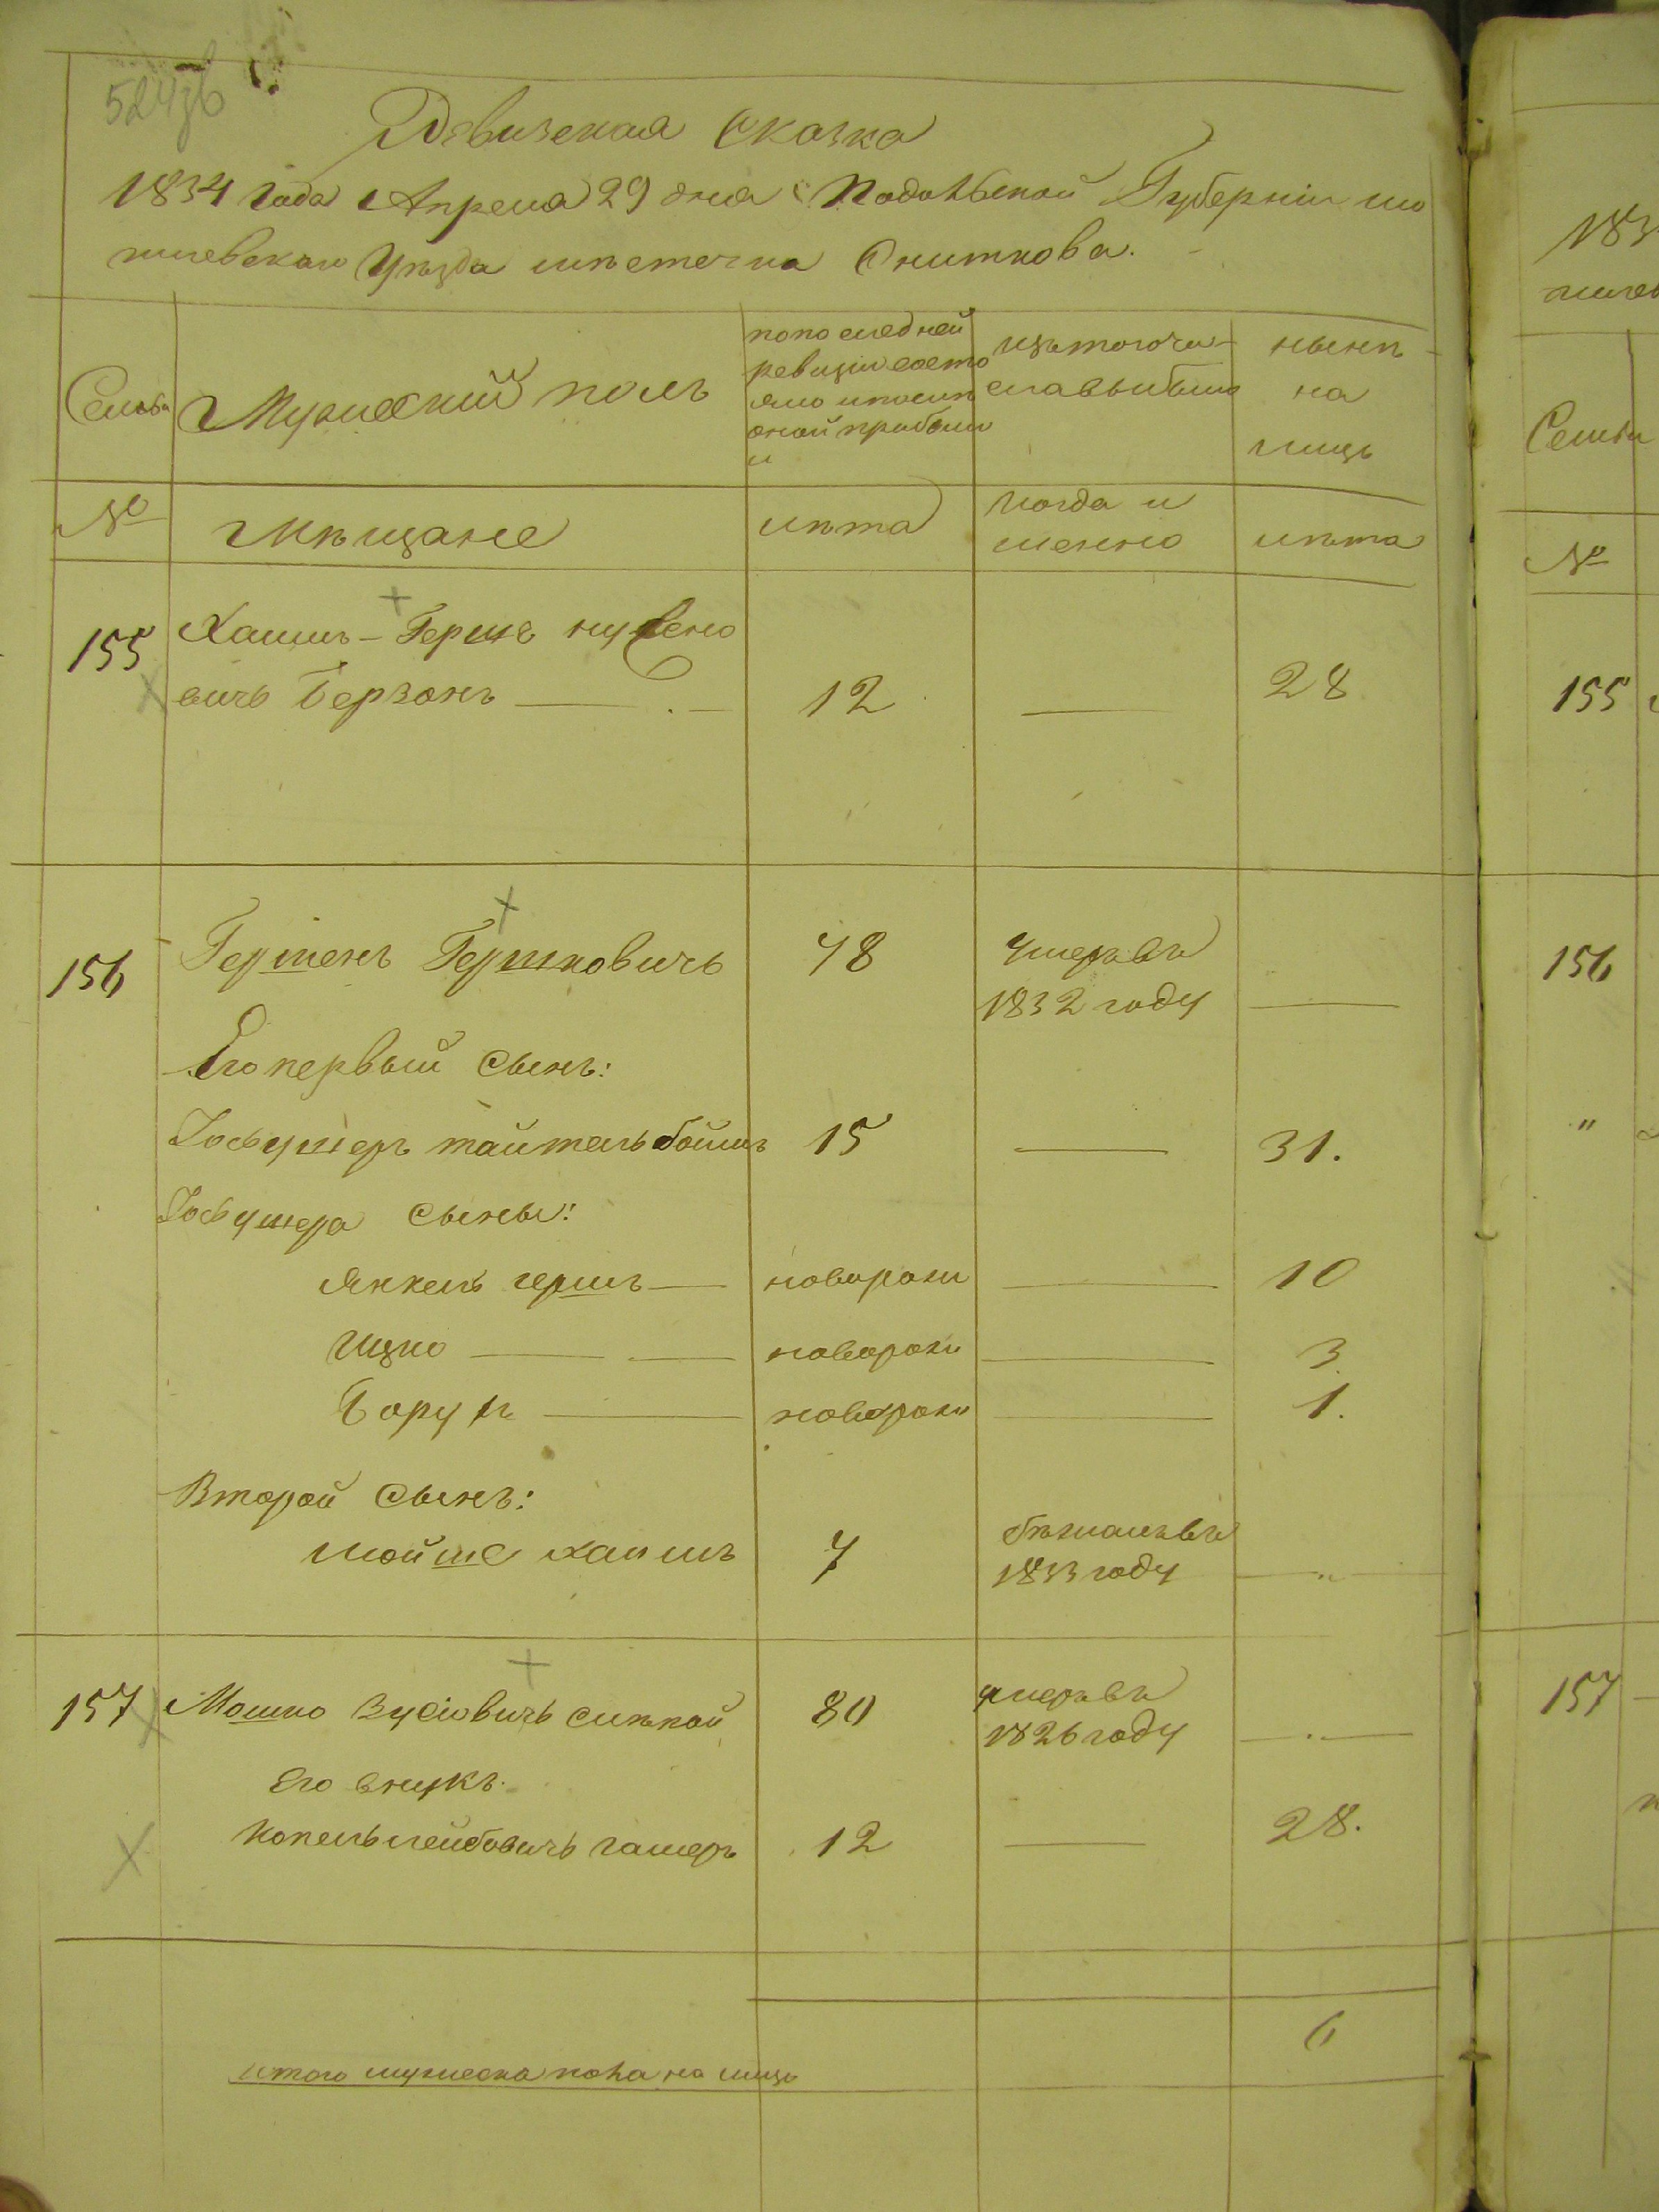 Ревизская Сказка
1834 года Апреля 29 дня Подольской Губерніи мо
гилевскаго Уѣзда мѣстечка Сниткова.
Семьи
Мужескій полъ
по последней
ревизіи состо
яло и после
оной прибыли
изъ того чи
сла выбыло
нынѣ
на
лицъ
№
Мѣщане
лѣта
когда и
менно
лѣта
155 Хаимъ-Гершъ
вичъ Берзонъ 12 — 28
156 Гершенъ Гершковичъ 48 умеръ въ
1832 году —
Его первый Сынъ:
Іосъ ушеръ тайтельбоймъ 15 — 31.
Іосъ ушера Сыны:
Янкель гершъ — новорож — 10
Ицко — новорож — 3
Борухъ — новорож — 1.
Второй Сынъ:
мойше хаимъ 7 бѣжалъ въ
1833 году —
157 Мошко Зусіовичъ слѣпой 80 умеръ въ
1826 году —
Его внукъ.
Копель лейбовичъ гамеръ 12 — 28.
6
итого мужеска пола на лицъ
183
гилев
Семьи
№
155
156
"
157